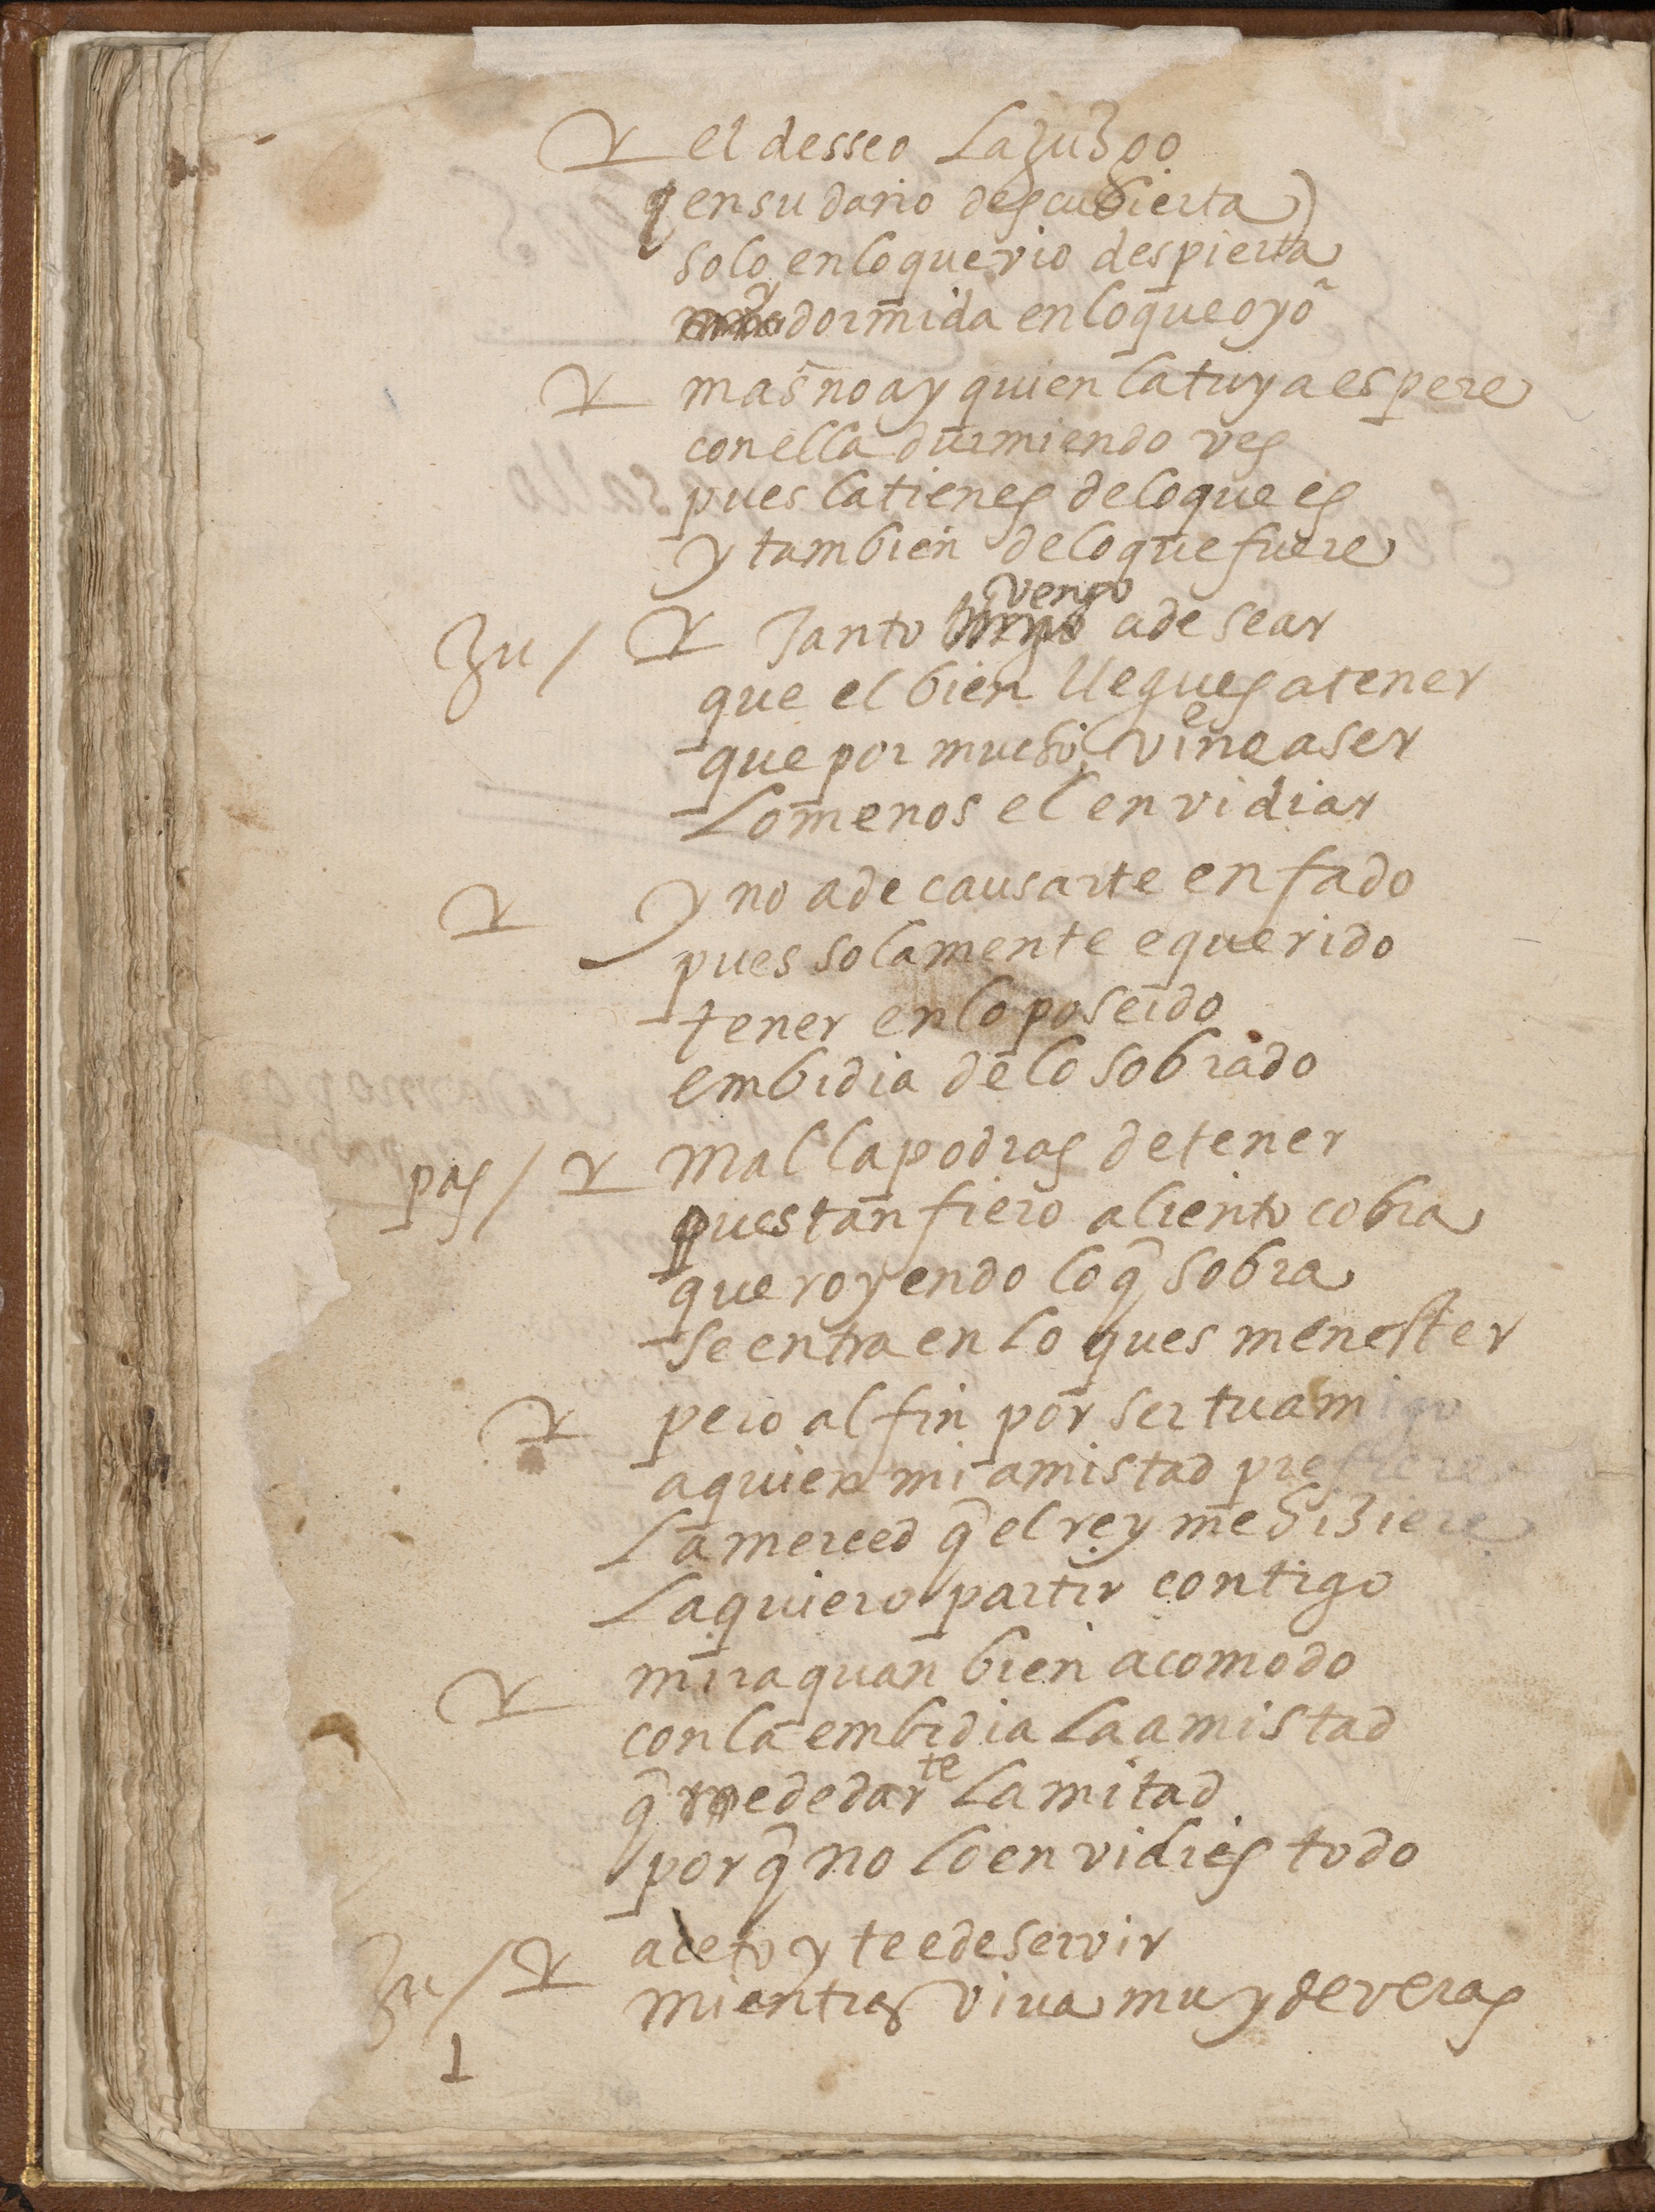 el desseo la zuzgo
q en su daño descubierta
solo en lo que vio despierta
y dormida en lo que oyo
mas no ay quien la tuya espere
con ella durmiendo ves
pues la tienes de lo que es
y tambien de lo que fuere
Zu / Tanto vengo a desear
que el bien llegues a tener
que por mucho vine a ser
lo menos el envidiar
y no a de causarte enfado
pues solamente e querido
tener en lo poseido
embidia de lo sobrado
pas / Mal la podras detener
pues tan fiero aliento cobra
que royendo lo q̃ sobra
se entra en lo ques menester
pero al fin por ser tu amigo
a quien mi amistad prefiere
la merced q̃ el rey me hiziere
la quiero partir contigo
mira quan bien acomodo
con la embidia la amistad
q̃ e de darte la mitad
por q̃ no lo envidies todo
Zu / aceto y te e de servir
mientras viva muy de veras
1